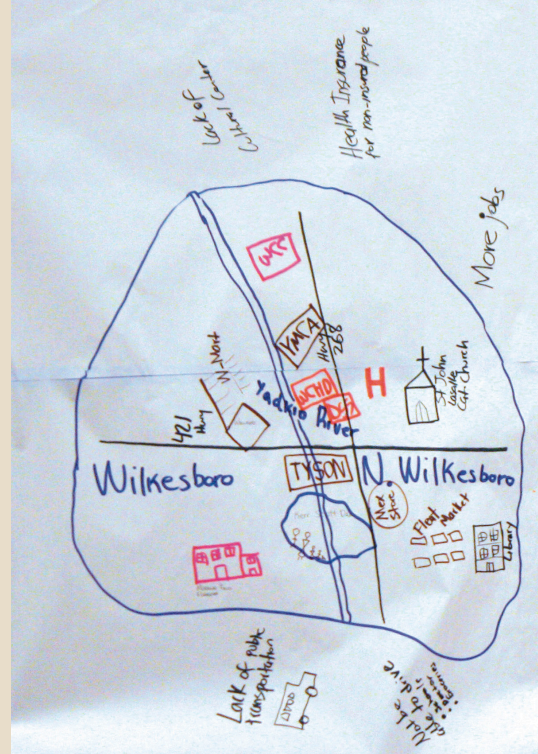 Lack of
Cultural Center
Health Insurance
for non-insured people
More jobs
WCC
YMCA
Hwy
268
W-Mart
421
Hwy
WCHD
DSS
H
St John
Cat. Church
Yadkin River
Wilkesboro
TYSON
N. Wilkesboro
Mex
Store
Fleat
Market
Library
Lack of Public
transportation
Not be
able to drive